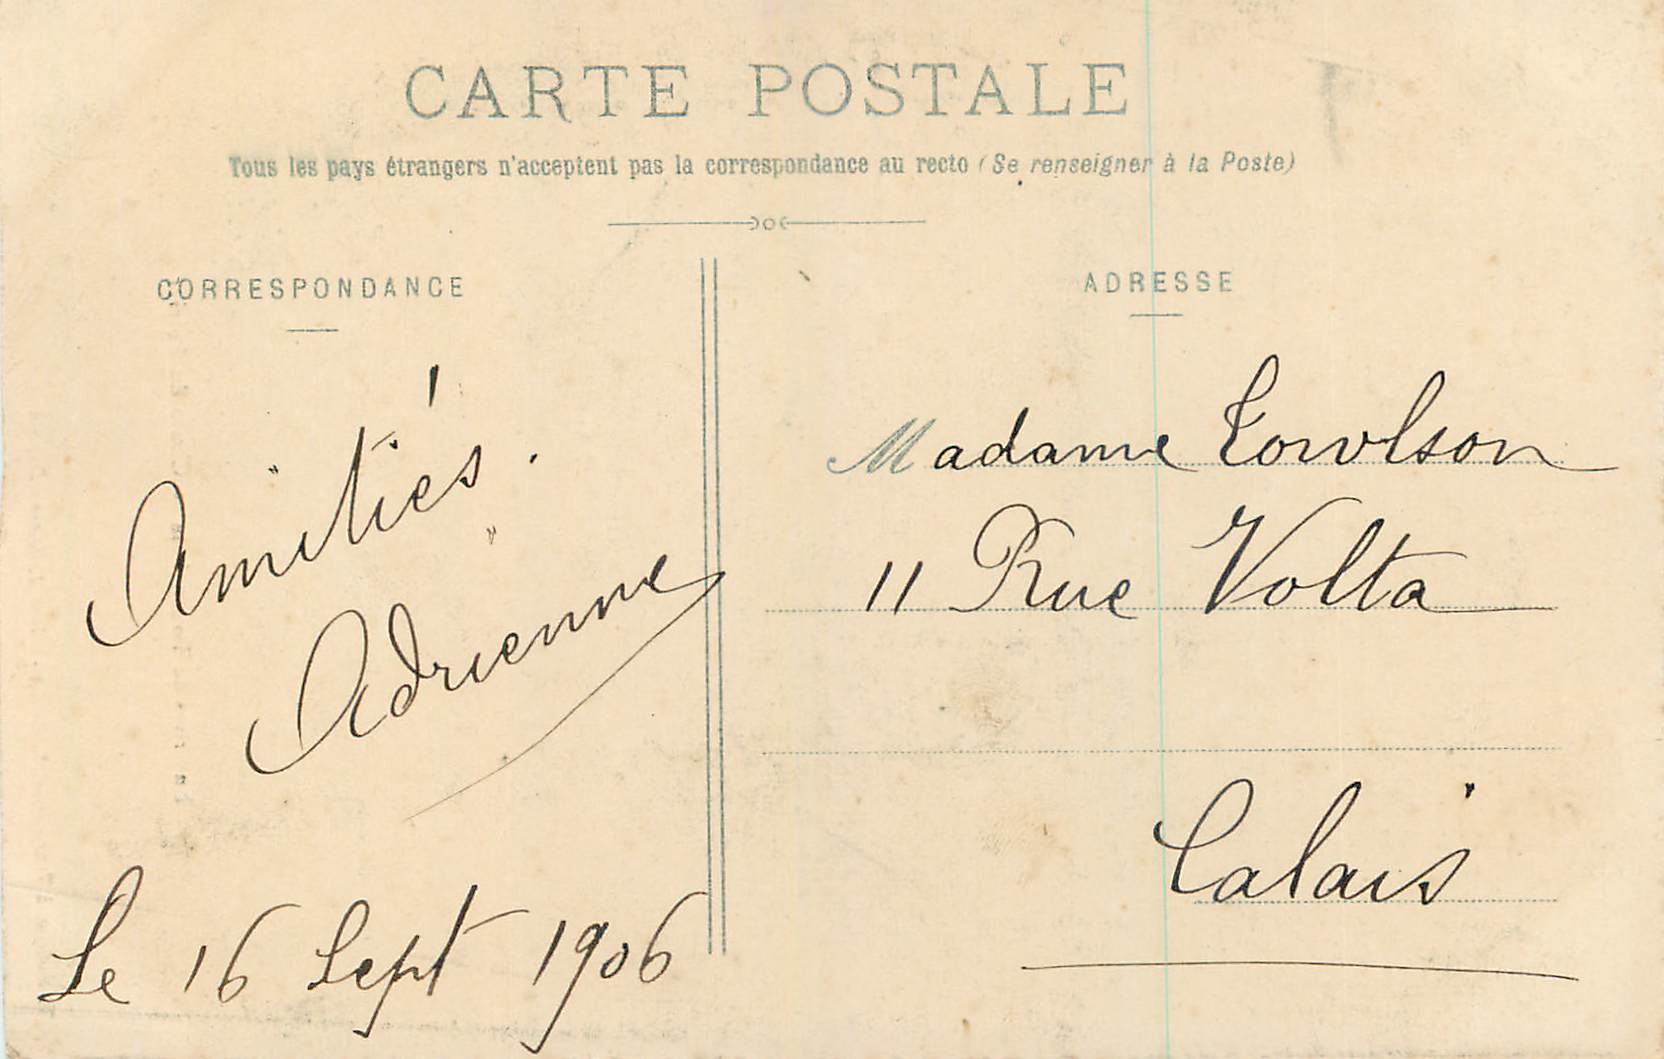 CARTE POSTALE
Tous les pays étrangers n'acceptent pas la correspondance au recto (Se renseigner à la Poste)
CORRESPONDANCE
Amitiés.
Adrienne
Le 16 Sept 1906
ADRESSE
Madame Towlson
11 Rue Volta
Calais